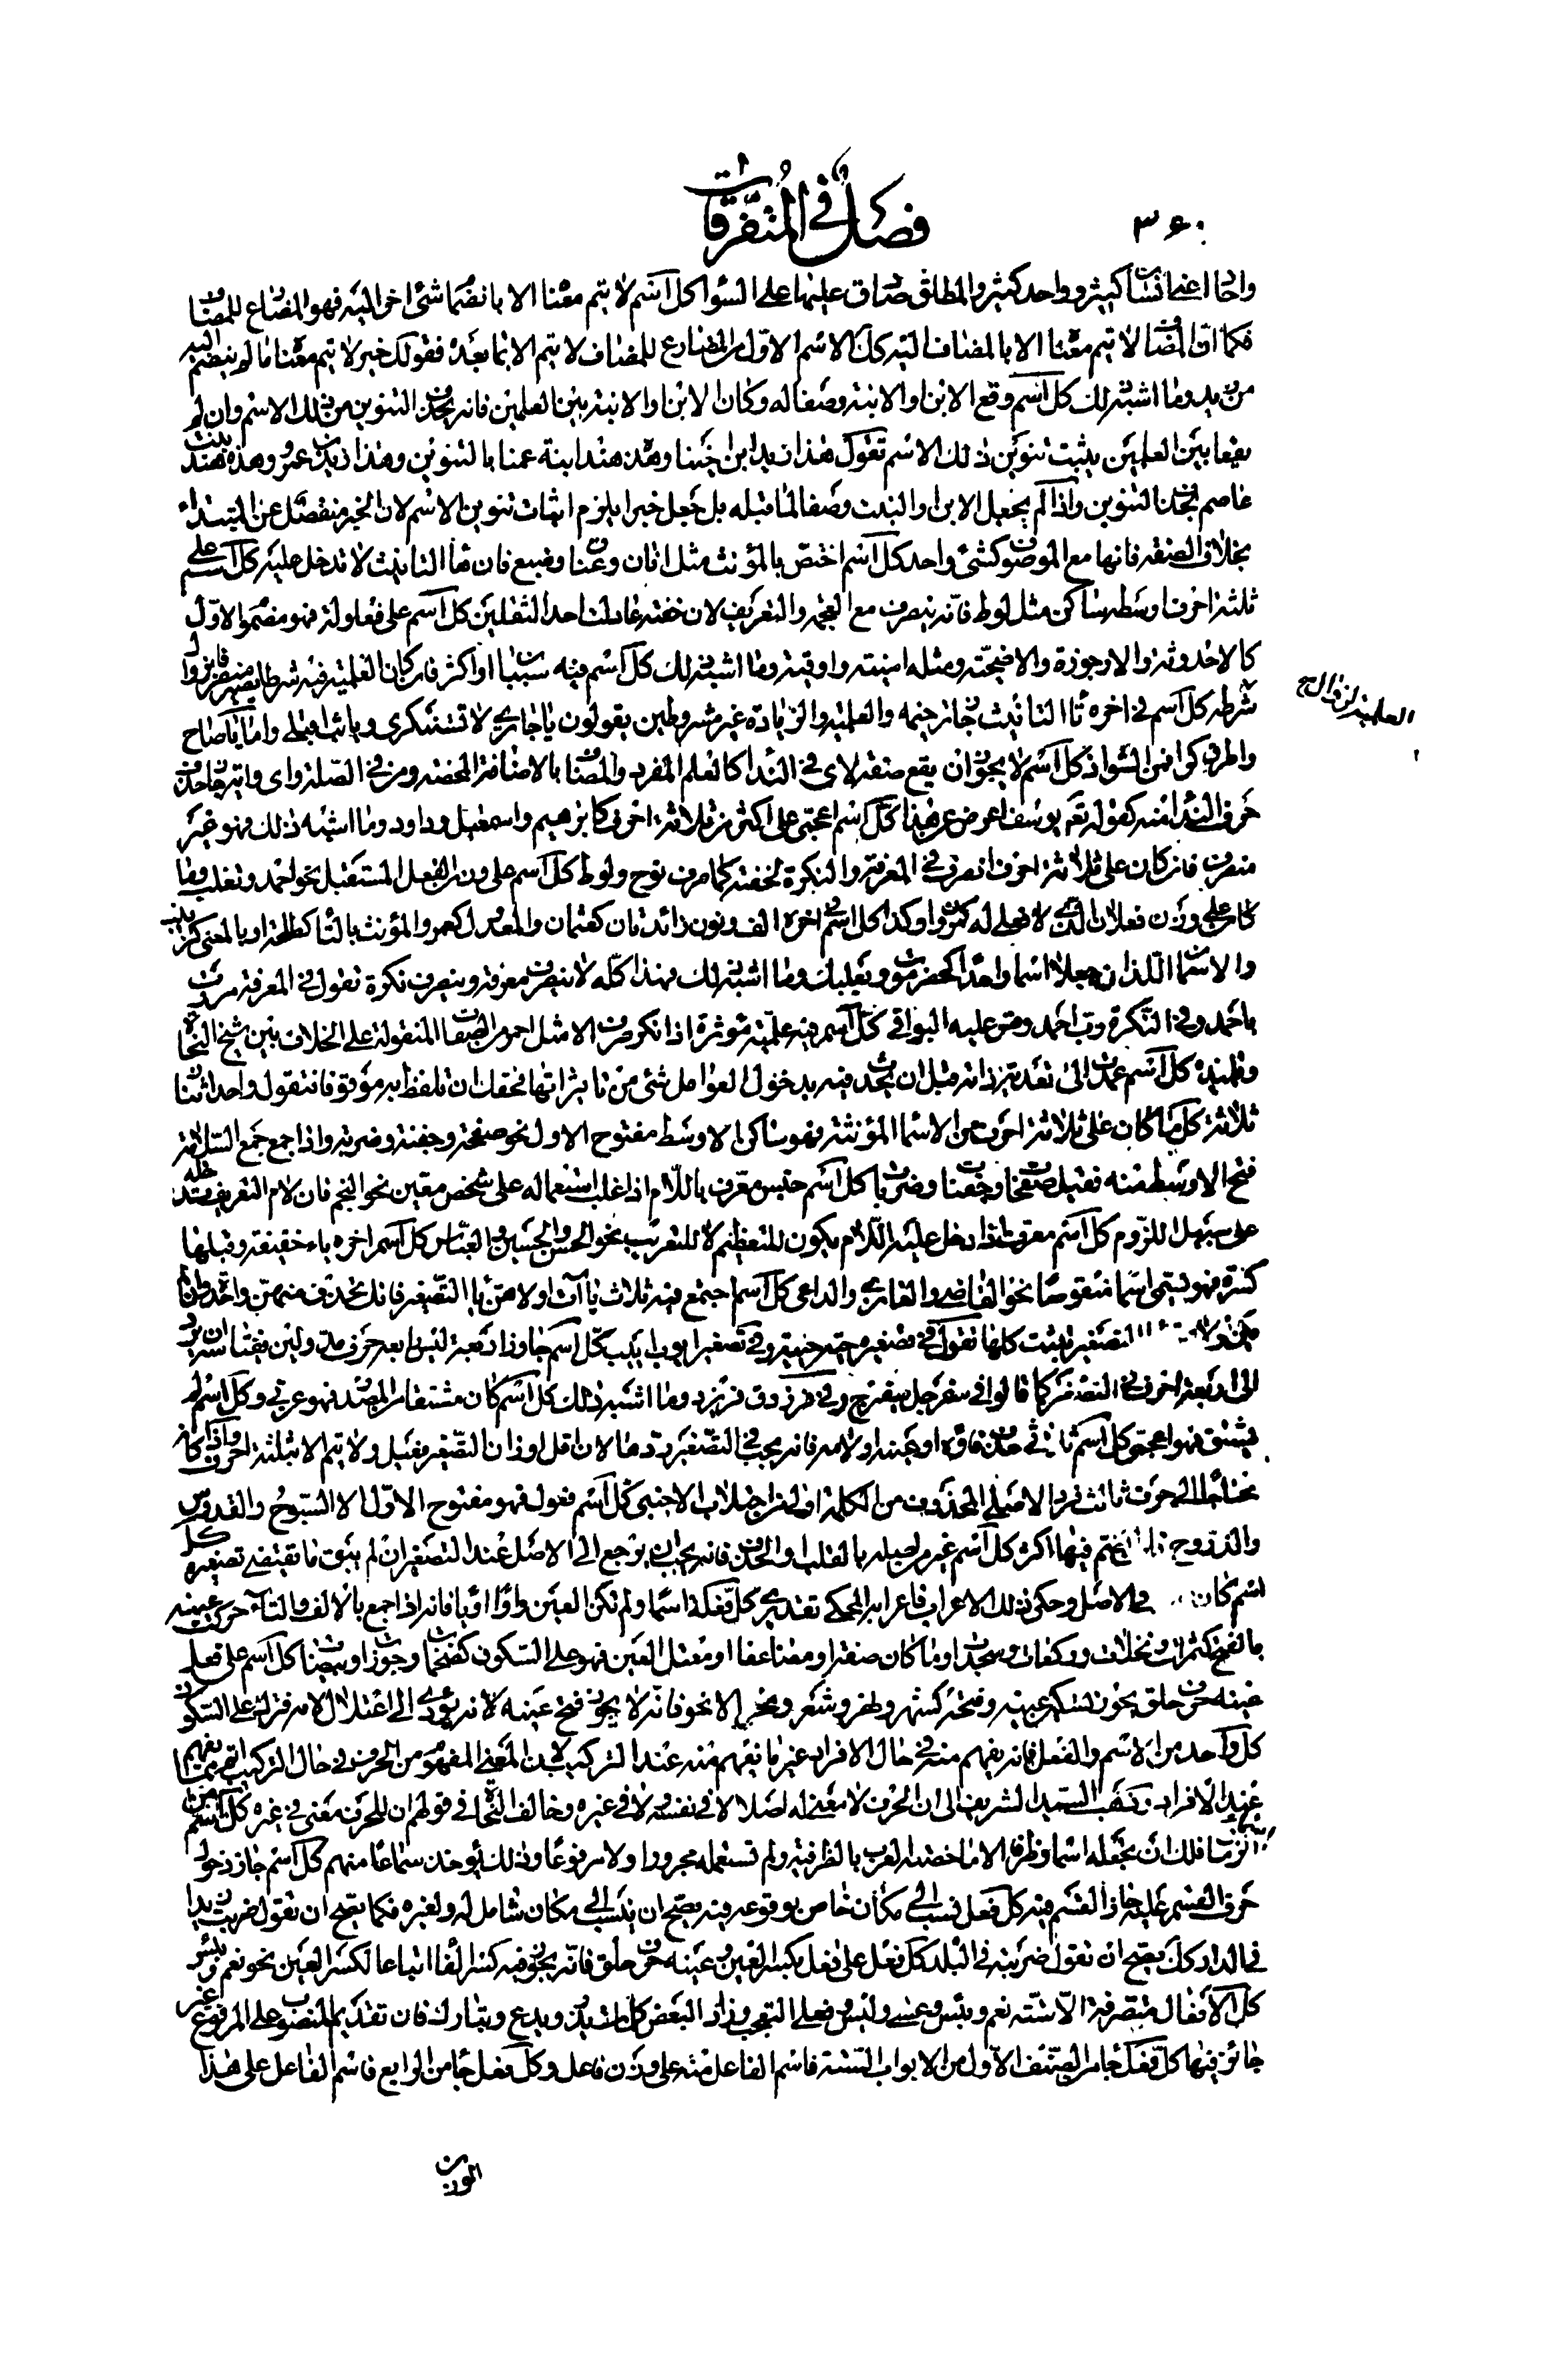 ٣٦٠
فصل في المتفرقات
واما اعني انسانا كثيرون واحد كثير والمطلق صادق عليهما على السواء كل اسم لا يتم معناه الا بانضمام شئ اخر اليه فهو المضارع للمضاف
فكما ان المضاف لا يتم معناه الا بالمضاف اليه كك الاسم الاول من المضارع للمضاف لا يتم الا بما بعده فقولك خير لا يتم معناه ما لم ينضم اليه
من زيد وما اشبه ذلك كل اسم وقع الابن او الابنة وصفا له وكان الابن او الابنة بين العلمين فانه يحذف التنوين من ذلك الاسم وان لم
يقعا بين العلمين يثبت تنوين ذلك الاسم تقول هذا زيد ابن اخينا وهذه هند ابنة عمنا بالتنوين وهذا زيد بن عمرو وهذه هند بنت
عاصم بحذف التنوين واذا لم يجعل الابن او البنت وصفا لما قبله بل جعل خبرا يلزم اثبات تنوين الاسم لان الخبر منفصل عن المبتداء
بخلاف الصفة فانها مع الموصوف كشئ واحد كل اسم اختص بالمؤنث مثل اتان وعناق وضبع فان هاء التانيث لا تدخل عليه كل اسم على
ثلثة احرف اوسطه ساكن مثل لوط فانه ينصرف مع العجمة والتعريف لان خفته عادلت احد الثقلين كل اسم على افعولة فهو مضموم الاول
كالاحدوثة والارجوزة والاضحية ومثله امنية واوقية وما اشبه ذلك كل اسم فيه سببان او اكثر فان كان العلمية فيه شرطا يصير منصرفا بزوال
شرطه كل اسم في اخره تاء التانيث جاز ترخيمه والعلمية والزيادة غير مشروطين يقولون يا جاري لا تستنكري ويا ثبا اقبلي واما يا صاح
واطرق كرا فمن الشواذ كل اسم لا يجوز ان يقع صفة لاي في النداء كالعلم المفرد والمضاف بالاضافة المحضة ومن في الصلة واى وايته جاز حذف
حرف النداء منه كقوله تعم يوسف اعرض عن هذا كل اسم اعجمي على اكثر من ثلاثة احرف كابرهيم واسمعيل وداود وما اشبه ذلك فهو غير
منصرف فان كان على ثلاثة احرف انصرف في المعرفة والنكرة لخفته كما صرف نوح ولوط كل اسم على وزن الفعل المستقبل نحو احمد وتغلب وما
كان على وزن فعلان الذي لا فعلى له كمروان وكذا كل اسم في اخره الف ونون زائدتان كعثمان والمعدول كعمر والمؤنث بالتاء كطلحة او بالمعنى كزينب
والاسمان اللذان جعلا اسما واحدا كحضرموت وبعلبك وما اشبه ذلك فهذا كله لا ينصرف معرفة وينصرف نكرة تقول في المعرفة مررت
باحمد وفي النكرة رب احمد وقس عليه البواقي كل اسم فيه علمية مؤثرة اذا نكر صرف الا مثل احمر من الصفات المنقولة على الخلاف بين شيخ النحاة
وتلميذه كل اسم عمدت الى تعديته ذاته قبل ان يحدث فيه بدخول العوامل شئ من تاثيراتها فحقك ان تلفظ به موقوفا فتقول واحد اثنان
ثلاثة كل ما كان على ثلاثة احرف من الاسماء المؤنثة فهو ساكن الاوسط مفتوح الاول نحو صفحة وجفنة وضربة واذا جمع جمع السلامة
فتح الاوسط منه فقيل صفحات وجفنات وضربات كل اسم جنس معرف باللام اذا غلب استعماله على شخص معين نحو النجم فان لام التعريف تدخله
على سبيل اللزوم كل اسم معرفة اذا دخل عليه اللام يكون للتعظيم لا للتعريف نحو الحسن والحسين والعباس كل اسم اخره ياء خفيفة وقبلها
كسرة فهو يسمى اسما منقوصا نحو القاضي والغازي والداعي كل اسم اجتمع فيه ثلاث يا آت اولاهن ياء التصغير فانك تحذف منهن واحدة فان لم
التصغير ثبتت كلها تقول في تصغير حية حيية وفي تصغير ايوب اييب كل اسم جاوز اربعة ليس رابعه حرف مد ولين يقتضا ان يرد
الى اربعة احرف في التصغير كما قالوا في سفرجل سفيرج وفي فرزدق فريزد وما اشبه ذلك كل اسم كان مشتقا من المصدر فهو عربي وكل اسم لم
يشتق فهو اعجمي كل اسم ثلاثي حذف فاؤه او عينه او لامه فانه يجب في التصغير ردها لان اقل اوزان التصغير فعيل ولا يتم الا بثلثة احرف واذا كان
محتاجا الى حرف ثالث فرد الاصلي المحذوف من الكلمة اولى من اجتلاب الاجنبي كل اسم فعول فهو مفتوح الاول الا السبوح والقدوس
والذروح فان الضم فيها اكثر كل اسم غير من اصله بالقلب او الحذف فانه يجب ان يرجع الى الاصل عند التصغير ان لم يبق ما يقتضي تصغيره كل
اسم كان في الاصل وحكى ذلك الاعراب فاعرابه المحكى تقديري كل فعلة اسما ولم تكن العين واوا او ياء فانه اذا جمع بالالف والتاء حركت عينه
بالفتح كثمرات ونخلات وركعات وسجدات وما كان صفة او مضاعفا او معتل العين فهو على السكون كضخمات وجوزات وبيضات كل اسم على فعل
عينه حرف حلق يجوز تسكين عينه وفتحه كشهر وظهر وشعر وبحر الا نحو فانه لا يجوز فتح عينه لانه يؤدي الى اعتلال لامه فترك على السكون
كل واحد من الاسم والفعل فانه يفهم منه في حال الافراد غير ما يفهم منه عند التركيب لان المعنى المفهوم من الحرف في حال التركيب اتم مما يفهم
عند الافراد وذهب السيد الشريف الى ان الحرف لا معنى له اصلا لا في نفسه ولا في غيره وخالف النحاة في قولهم ان للحرف معنى في غيره كل اسم من
اسماء الزمان فلك ان تجعله اسما وظرفا الا ما خصته العرب بالظرفية ولم تستعمله مجرورا ولا مرفوعا وذلك يؤخذ سماعا منهم كل اسم جاز دخول
حرف القسم عليه جاز القسم فيه كل فعل نسب الى مكان خاص بوقوعه فيه يصح ان ينسب الى مكان شامل له ولغيره فكما يصح ان تقول ضربت زيدا
في الدار كك يصح ان تقول ضربته في البلد كل فعل على فعل بكسر العين وعينه حرف حلق فانه يجوز فيه كسر الفاء اتباعا لكسر العين نحو نعم وبئس
كل الافعال متصرفة الا ستة نعم وبئس وعسى وليس وفعلى التعجب وزاد البعض كلمات يذر ويدع وتبارك فان تقديم المنصوب على المرفوع غير
جائز فيها كل فعل جاء من الصنف الاول من الابواب الستة فاسم الفاعل منه على وزن فاعل وكل فعل جاء من الرابع فاسم الفاعل على هذا
الوزن